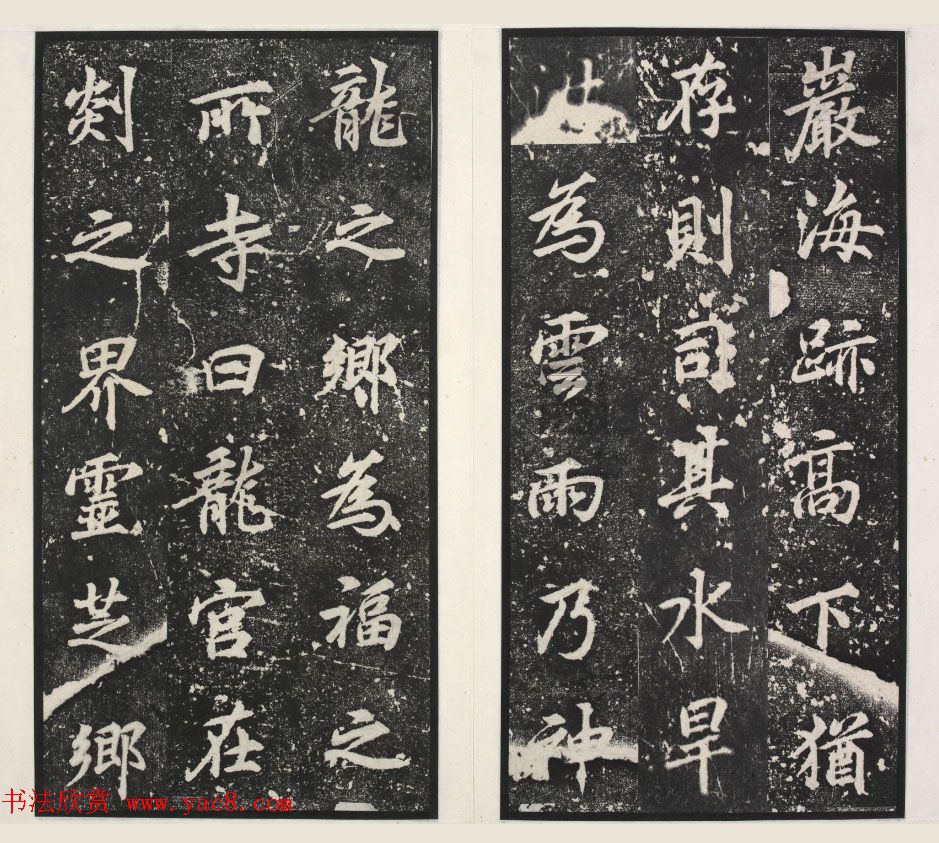 巖海跡高下猶
存則司其水旱
為雲雨乃神
龍之鄉為福之
所寺曰龍宮在
剡之界靈芝鄉
书法欣赏 www.yac8.com